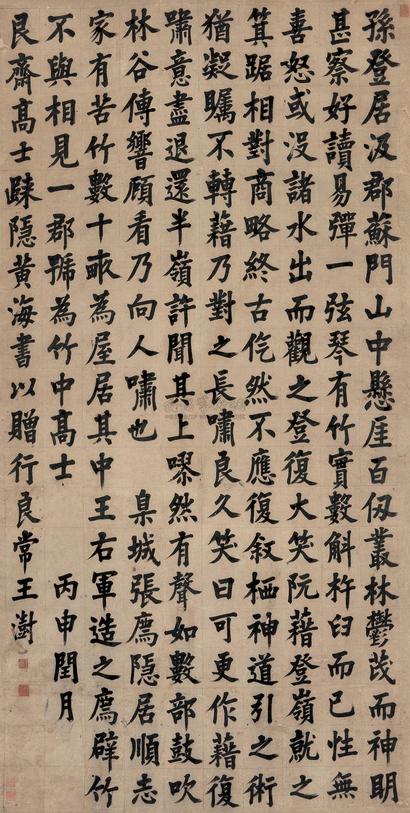 孫登居汲郡蘇門山中懸崖百仭叢林鬱茂而神明
甚察好讀易彈一弦琴有竹實數斛杵臼而已性無
喜怒或沒諸水出而觀之登復大笑阮藉登嶺就之
箕踞相對商略終古仡然不應復叙栖神道引之術
猶凝矚不轉藉乃對之長嘯良久笑曰可更作藉復
嘯意盡退還半嶺許聞其上嘐然有聲如數部鼓吹
林谷傳響顧看乃向人嘯也 臯城張廌隱居順志
家有苦竹數十畝為屋居其中王右軍造之廌辟竹
不與相見一郡號為竹中高士 丙申閏月
艮齋高士踈隱黃海書以贈行良常王澍